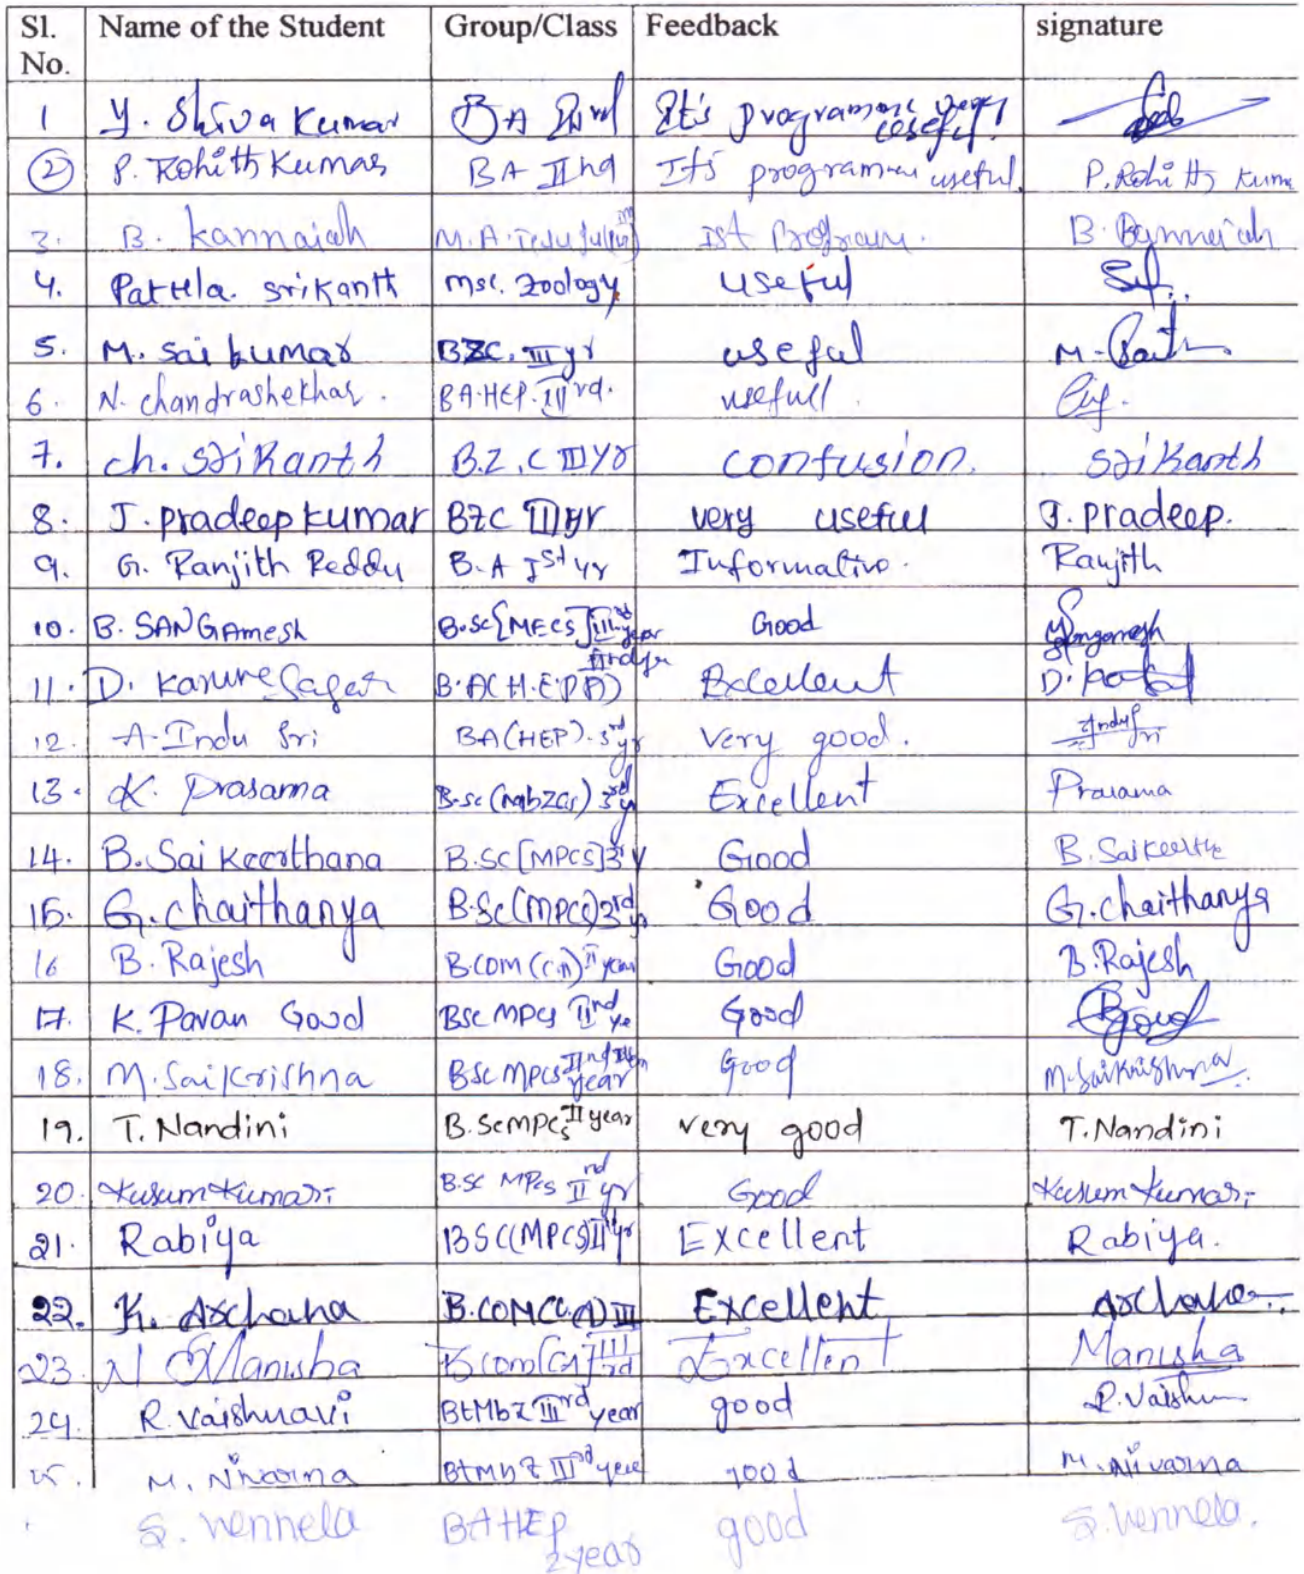 Sl. No. Name of the Student Group/Class Feedback signature
1 Y. Shiva Kumar BA It's programme very useful!
2 P. Rohith Kumar BA IInd It's programme useful. P. Rohith Kuma
3. B. Kannaiah M.A. Ist Program. B. Kannaiah
4. Pattla. Srikanth msc. Zoology useful
5. M. Sai kumar BZC. III yr useful M.
6. N. chandrashekhar. BA.HEP. IIIrd. usefull.
7. ch. Srikanth B.Z.C III yr confusion. Srikanth
8. J. pradeep kumar BZC III yr very useful J. pradeep.
9. G. Ranjith Reddy B.A Ist yr Informative. Ranjith
10. B. SANGAmesh B.Sc[MECS] IIIrd year Good Sangamesh
11. D. Karune Sagar B.A(H.E.P.A) IIrd yr Excellent D.
12. A. Indu Sri BA(HEP). 3rd yr Very good. Indu Sri
13. K. Prasama B.sc 3rd y Excellent Prasama
14. B. Sai Keerthana B.SC[MPCS] 3 y Good B. Saikeerth
15. G. chaithanya B.Sc(MPCS) 3rd y Good G. chaithanya
16 B. Rajesh B.COM (C.A) II year Good B. Rajesh
17. K. Pavan Goud BSc MPCS IInd ye Good Goud
18. M. Sai Krishna BSc MPCS IInd year Good M. Saikrishna
19. T. Nandini B.Sc MPCS II year very good T. Nandini
20. Kusum Kumari B.SC MPCS IIrd yr Good Kusum Kumari
21. Rabiya BSC(MPCS) II yr Excellent Rabiya.
22. K. Archana B.COM(C.A) III Excellent Archana
23. N Manisha B com(CA) IIIrd Excellent Manisha
24. R. Vaishnavi BtMbZ IIIrd year good R. Vaishn
25. M. Nivarna BtMbZ IIIrd year good M. Nivarna
S. Vennela BA HEP 2 year good S. Vennela.